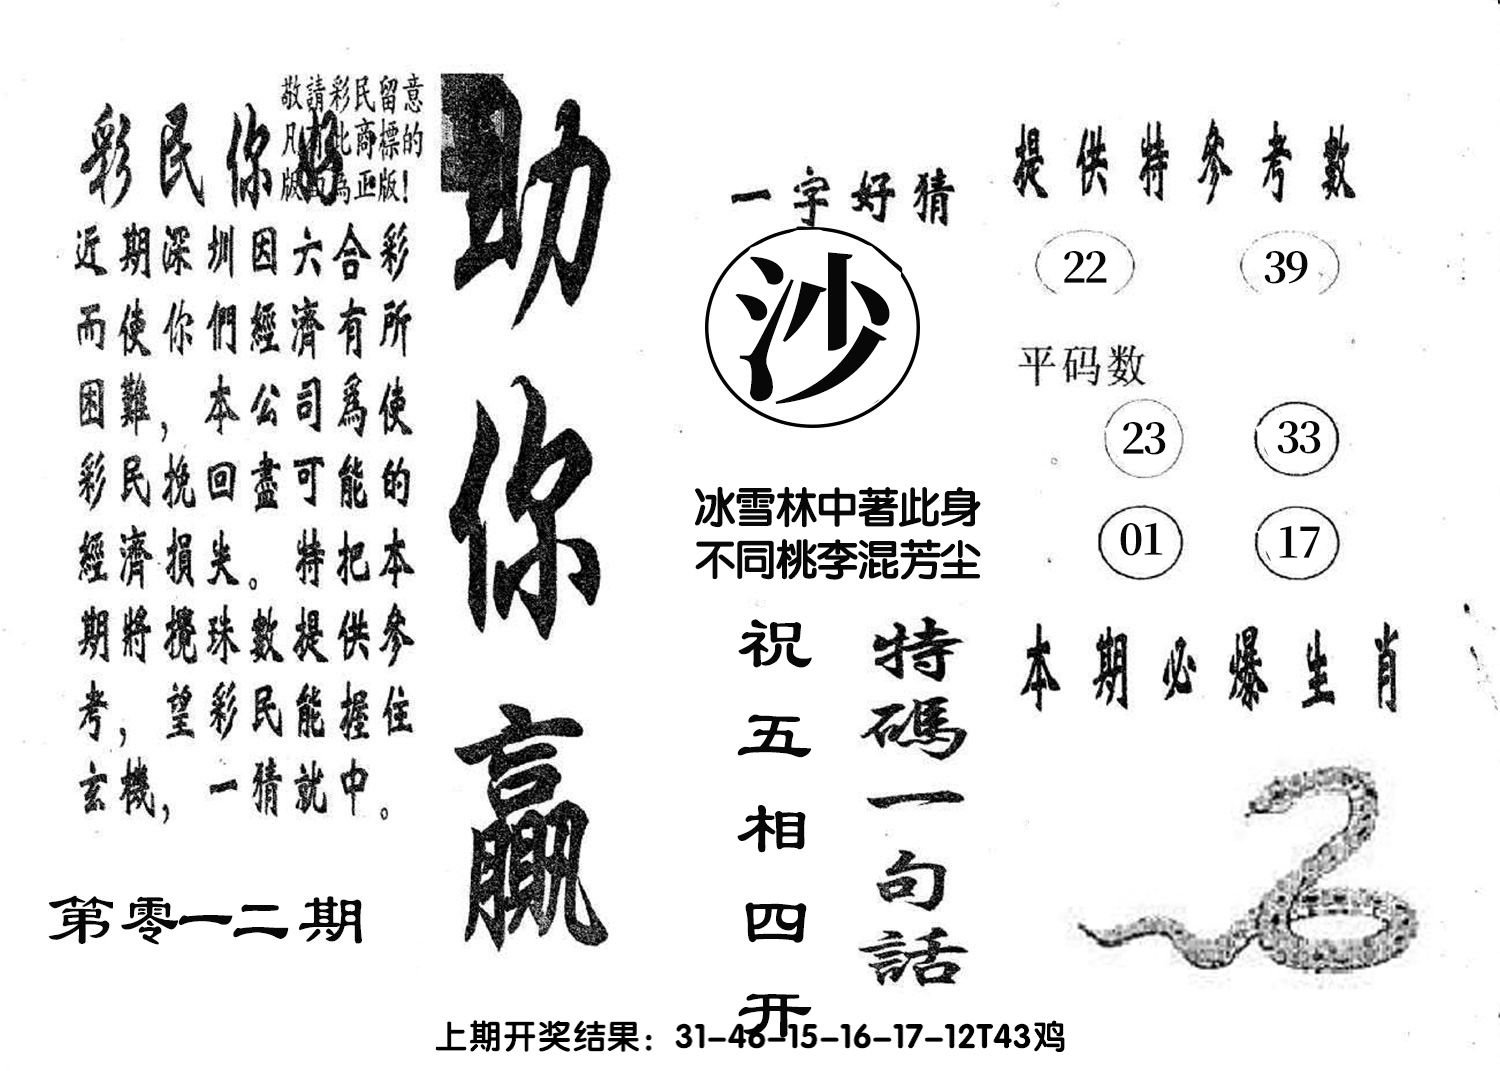 敬請彩民留意
凡有此商標的
版面為正版!
彩民你好
近期深圳因六合彩
而使你們經濟有所
困難，本公司爲使
彩民挽回盡可能的
經濟損失。特把本
期將攪珠數提供參
考，望彩民能握住
玄機，一猜就中。
第零一二期
助你贏
一字好猜
沙
冰雪林中著此身
不同桃李混芳尘
特碼一句話
祝五相四开
提供特參考數
22 39
平码数
23 33
01 17
本期必爆生肖
上期开奖结果：31-46-15-16-17-12T43鸡